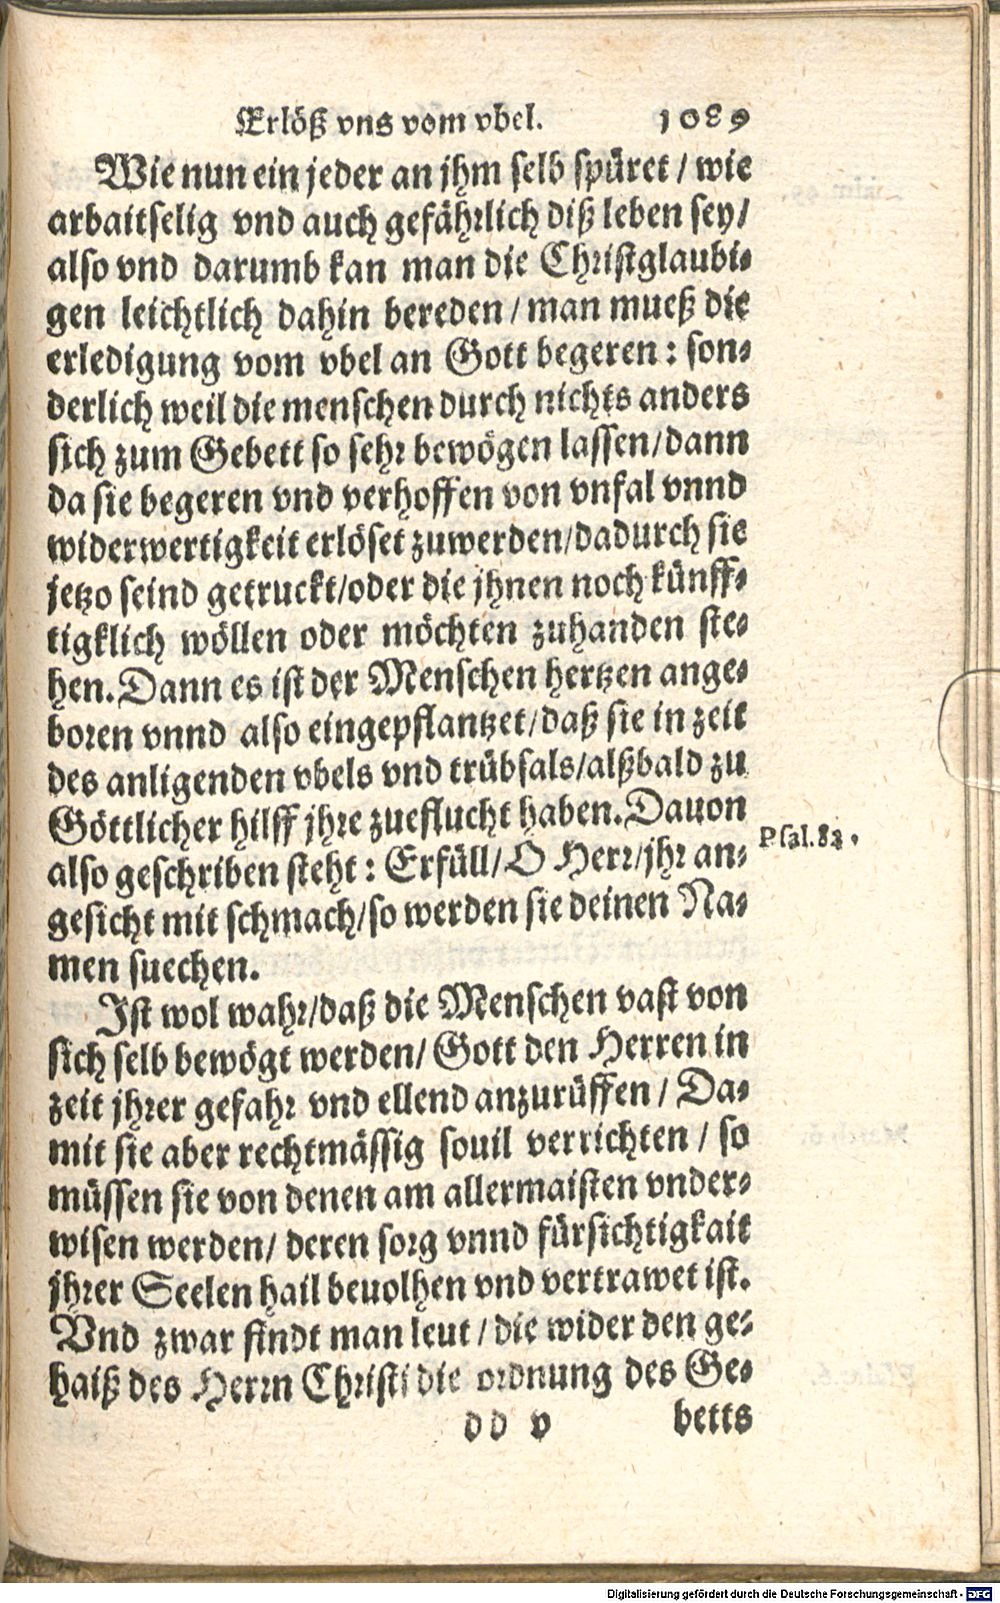 Erlöß vns vom vbel. 1089
Wie nun ein jeder an jhm selb spüret / wie
arbaitselig vnd auch gefährlich diß leben sey/
also vnd darumb kan man die Christglaubi⸗
gen leichtlich dahin bereden / man mueß die
erledigung vom vbel an Gott begeren: son⸗
derlich weil die menschen durch nichts anders
sich zum Gebett so sehr bewögen lassen/dann
da sie begeren vnd verhoffen von vnfal vnnd
widerwertigkeit erlöset zuwerden/dadurch sie
jetzo seind getruckt/oder die jhnen noch künff⸗
tigklich wöllen oder möchten zuhanden ste⸗
hen. Dann es ist der Menschen hertzen ange⸗
boren vnnd also eingepflantzet/daß sie in zeit
des anligenden vbels vnd trübsals/alßbald zu
Göttlicher hilff jhre zueflucht haben. Dauon
also geschriben steht: Erfüll/O Herr/jhr an⸗
Psal.82.
gesicht mit schmach/so werden sie deinen Na⸗
men suechen.
Ist wol wahr/daß die Menschen vast von
sich selb bewögt werden/ Gott den Herren in
zeit jhrer gefahr vnd ellend anzurüffen / Da⸗
mit sie aber rechtmässig souil verrichten / so
müssen sie von denen am allermaisten vnder⸗
wisen werden/ deren sorg vnnd fürsichtigkait
jhrer Seelen hail beuolhen vnd vertrawet ist.
Vnd zwar findt man leut / die wider den ge⸗
haiß des Herrn Christi die ordnung des Ge⸗
dd v betts
Digitalisierung gefördert durch die Deutsche Forschungsgemeinschaft - DFG